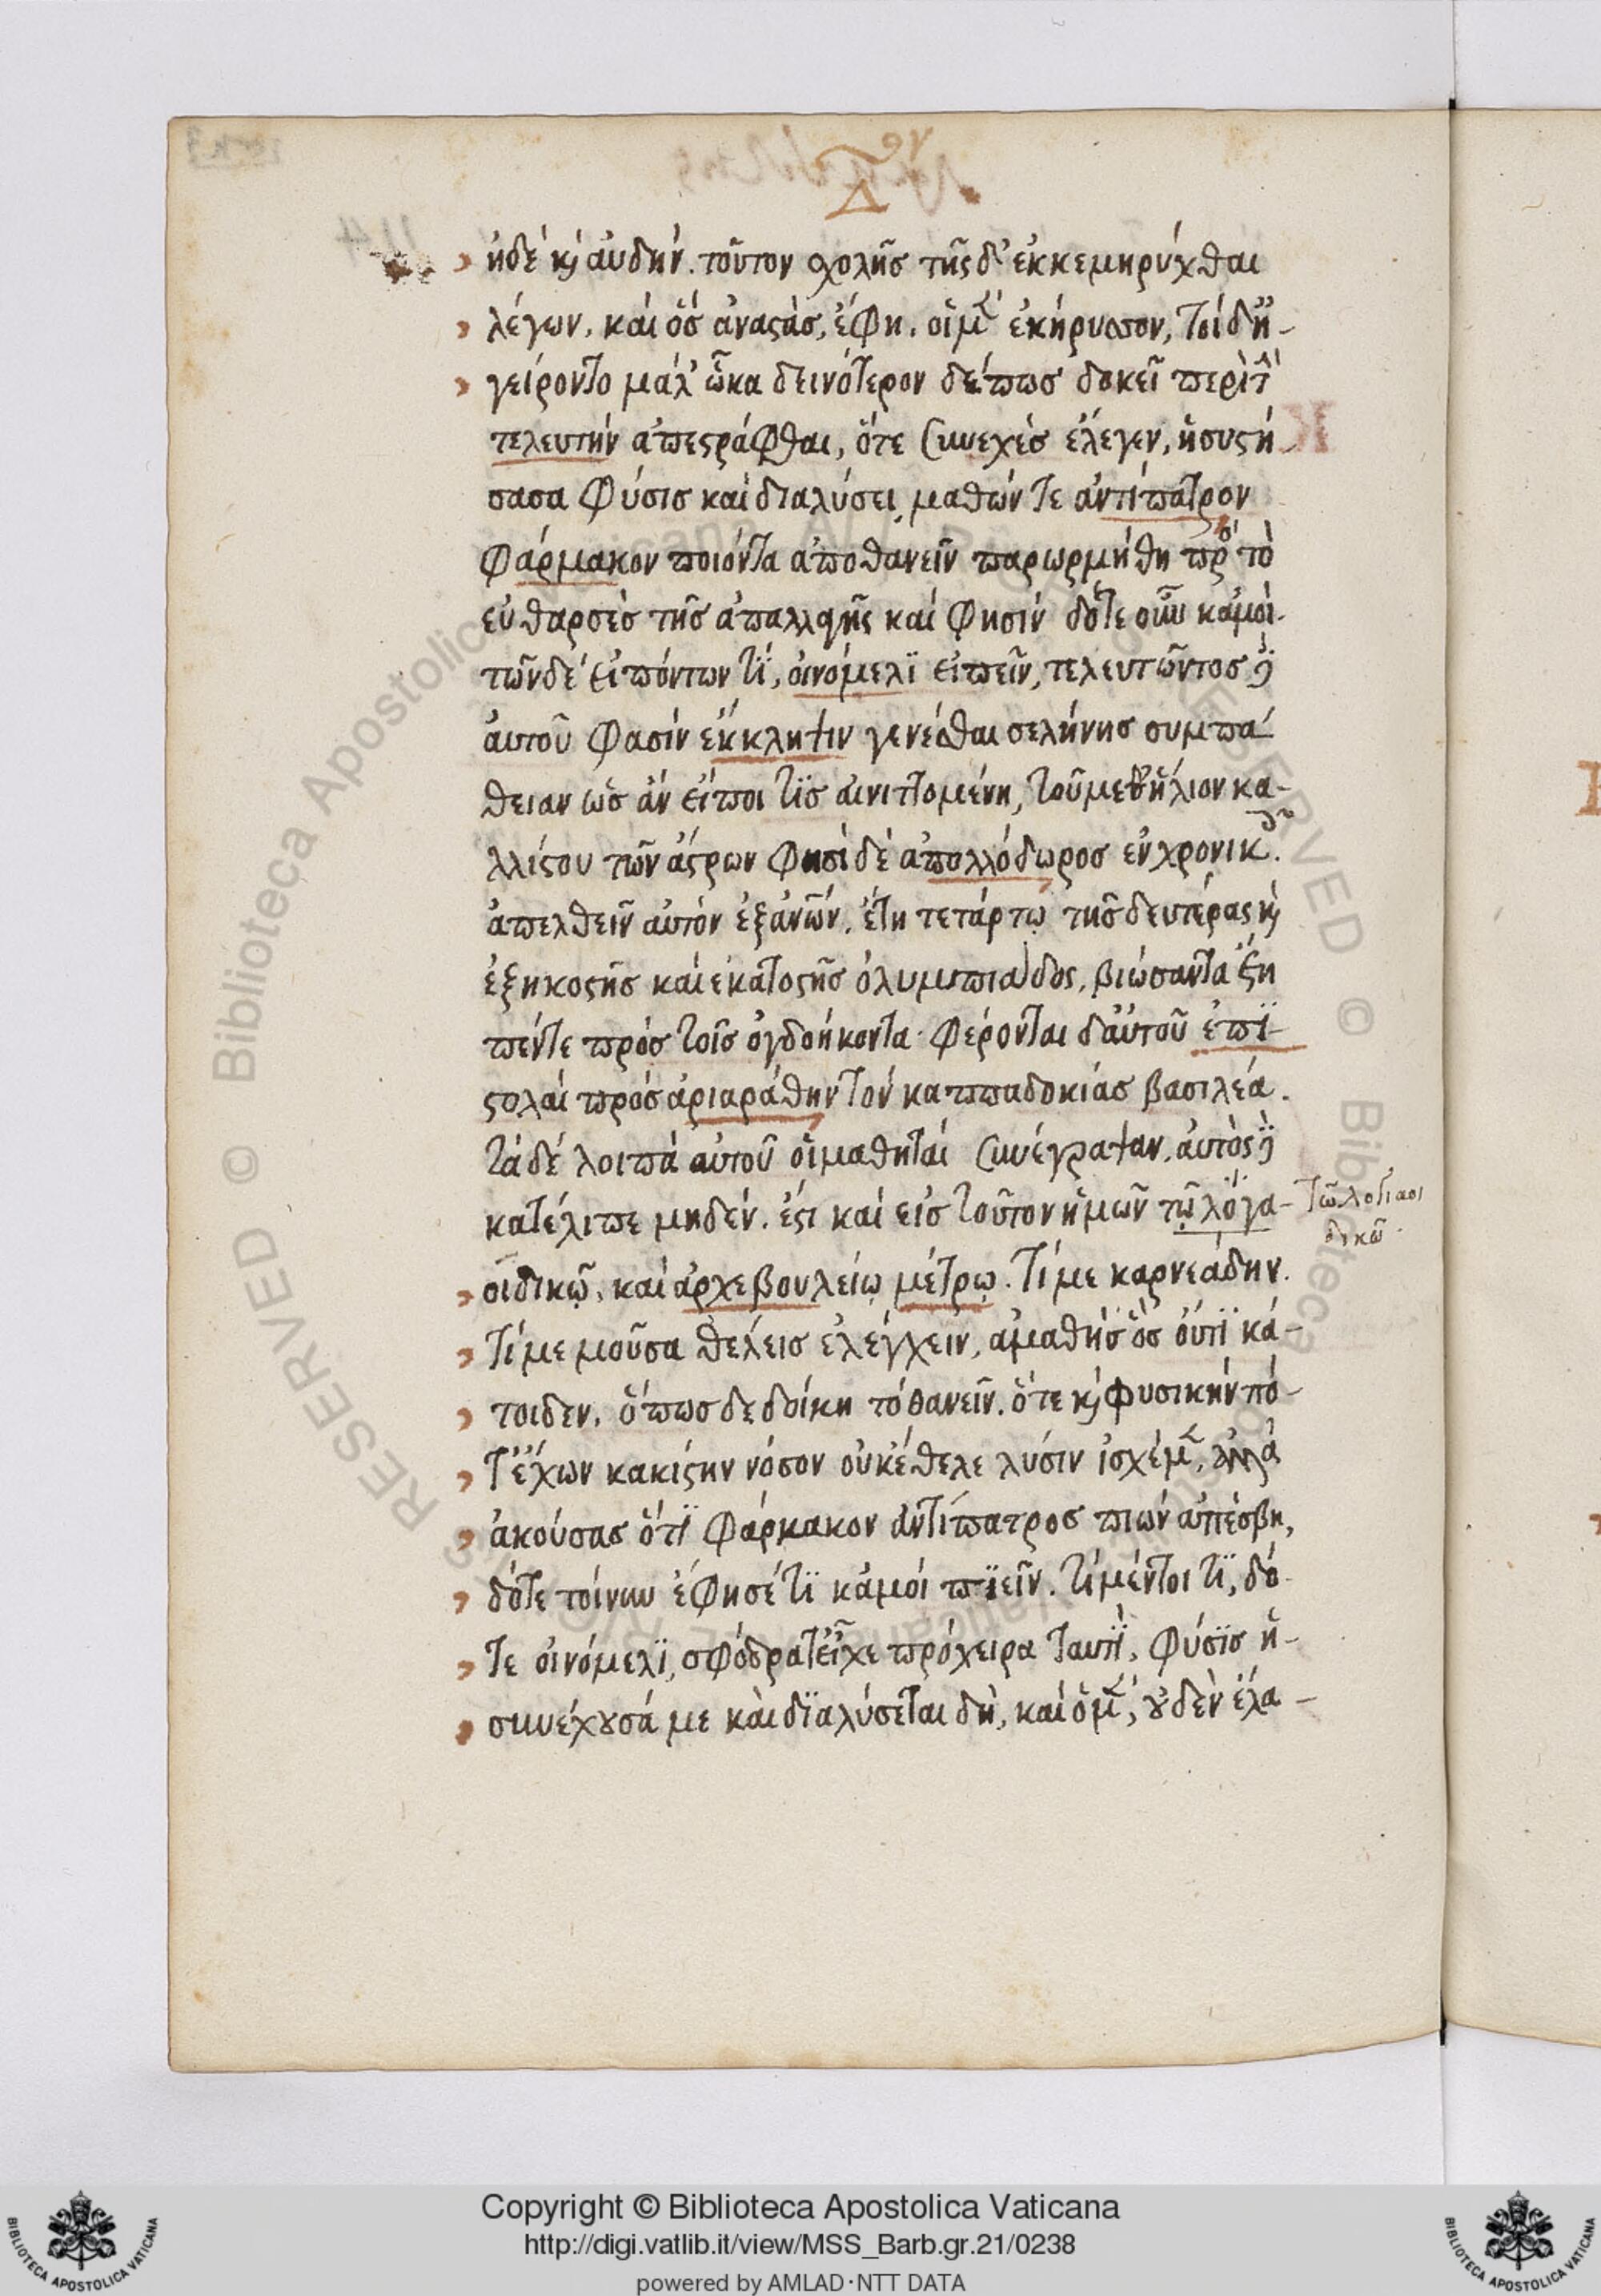 Δ
ἠδὲ κ αὐδήν. τοῦτον σχολῆς τῆς δ' ἐκκεμηρύχθαι
λέγων. καὶ ὃς ἀναστάς, ἔφη. οἱ μὲν ἐκήρυσσον, τοὶ δ' ἠ-
γείροντο μάλ' ὦκα δεινότερον δέ πως δοκεῖ περὶ τὴν
τελευτήν ἀπεστράφθαι, ὅτε συνεχὲς ἔλεγεν, ἡ συστή
σασα φύσις καὶ διαλύσει, μαθών τε ἀντίπατρον
φάρμακον ποιόντα ἀποθανεῖν παρωρμήθη πρὸς τὸ
εὐθαρσὲς τῆς ἀπαλλαγῆς καί φησίν δότε οὖν κἀμοί.
τῶν δέ εἰπόντων τί, οἰνόμελι εἰπεῖν, τελευτῶντος δὲ
αὐτοῦ φασίν ἔκκλητιν γενέσθαι σελήνης συμπά
θειαν ὡς ἄν εἴποι τις αἰνιττομένη, τοῦ μεθ' ἥλιον κα-
λλίστου τῶν ἄστρων φησὶ δὲ ἀπολλόδωρος ἐν χρονικ.
ἀπελθεῖν αὐτὸν ἐξ ἀνῶν. ἔτη τετάρτῳ τῆς δευτέρας κ
ἑξηκοστῆς καὶ ἑκατοστῆς ὀλυμπιάδος, βιώσαντα ἔτη
πέντε πρὸς τοῖς ὀγδοήκοντα· φέρονται δ' αὐτοῦ ἐπι-
στολαί πρὸς ἀριαράθην τὸν καππαδοκίας βασιλέα.
τὰ δὲ λοιπὰ αὐτοῦ οἱ μαθηταί συνέγραψαν. αὐτὸς δὲ
κατέλιπε μηδέν. ἔστι καὶ εἰς τοῦτον ἡμῶν τῷ λόγα-
τῶ λογιαοι
δικῶ.
οιδικῷ. καὶ ἀρχεβουλείῳ μέτρῳ. τί με καρνεάδην.
τί με μοῦσα θέλεις ἐλέγχειν, ἀμαθής ὃς οὔτι κά-
τοιδεν. ὅπως δεδοίκη τὸ θανεῖν. ὅτε κ φυσικήν πό-
τ' ἔχων κακίστην νόσον οὐκ ἔθελε λύσιν ἰσχέμ, ἀλλὰ
ἀκούσας ὅτι φάρμακον ἀντίπατρος πιών ἀπέσβη,
δότε τοίνυν ἔφησέ τι κἀμοί πιεῖν. τί μέντοι τί, δό-
τε οἰνόμελι, σφόδρα τ' εἶχε πρόχειρα ταυτί, φύσις ἡ-
συνέχουσά με καὶ διαλύσεται δὴ, καὶ ὁ μὲν, οὐδὲν ἔλα-
Copyright © Biblioteca Apostolica Vaticana
http://digi.vatlib.it/view/MSS_Barb.gr.21/0238
powered by AMLAD·NTT DATA